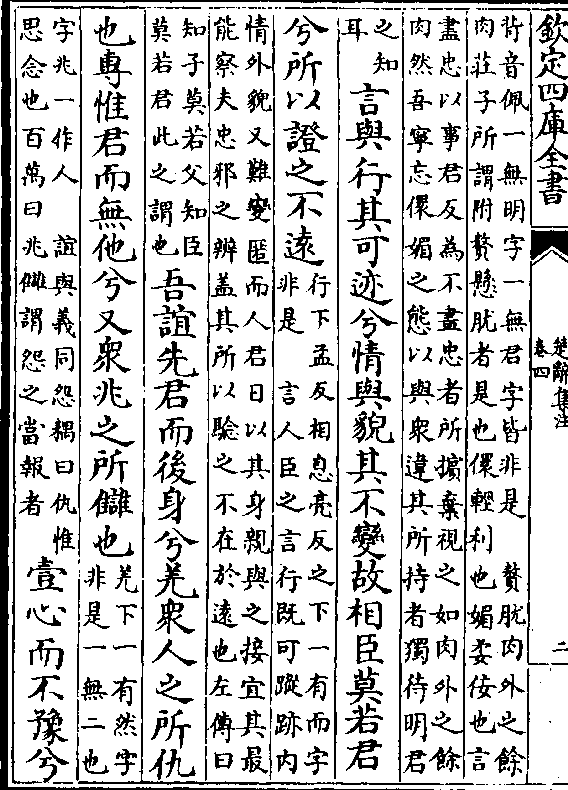 欽定四庫全書
楚辭集注
卷四
二
背音佩一無明字一無君字皆非是　贅肬肉外之餘
肉莊子所謂附贅懸肬者是也儇輕利也媚柔佞也言
盡忠以事君反為不盡忠者所擯棄視之如肉外之餘
肉然吾寧忘儇媚之態以與衆違其所持者獨待明君
之知
耳
言與行其可迹兮情與貌其不變故相臣莫若君
兮所以證之不遠
行下孟反相息亮反之下一有而字
非是　言人臣之言行既可蹤跡内
情外貌又難變匿而人君日以其身親與之接宜其最
能察夫忠邪之辨蓋其所以驗之不在於遠也左傳曰
知子莫若父知臣
莫若君此之謂也
吾誼先君而後身兮羌衆人之所仇
也專惟君而無他兮又衆兆之所讎也
羌下一有然字
非是一無二也
字兆一作人　誼與義同怨耦曰仇惟
思念也百萬曰兆讎謂怨之當報者
壹心而不豫兮